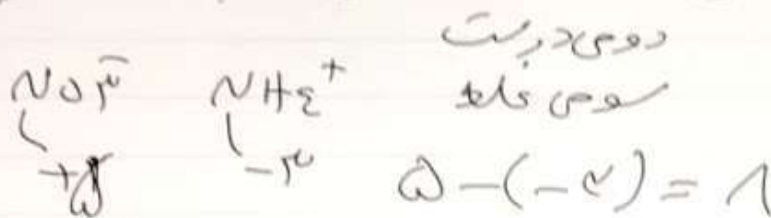 دومی درست
NO۳⁻ NH۴⁺ سومی غلط
+۵ -۳ ۵-(-۳)=۸